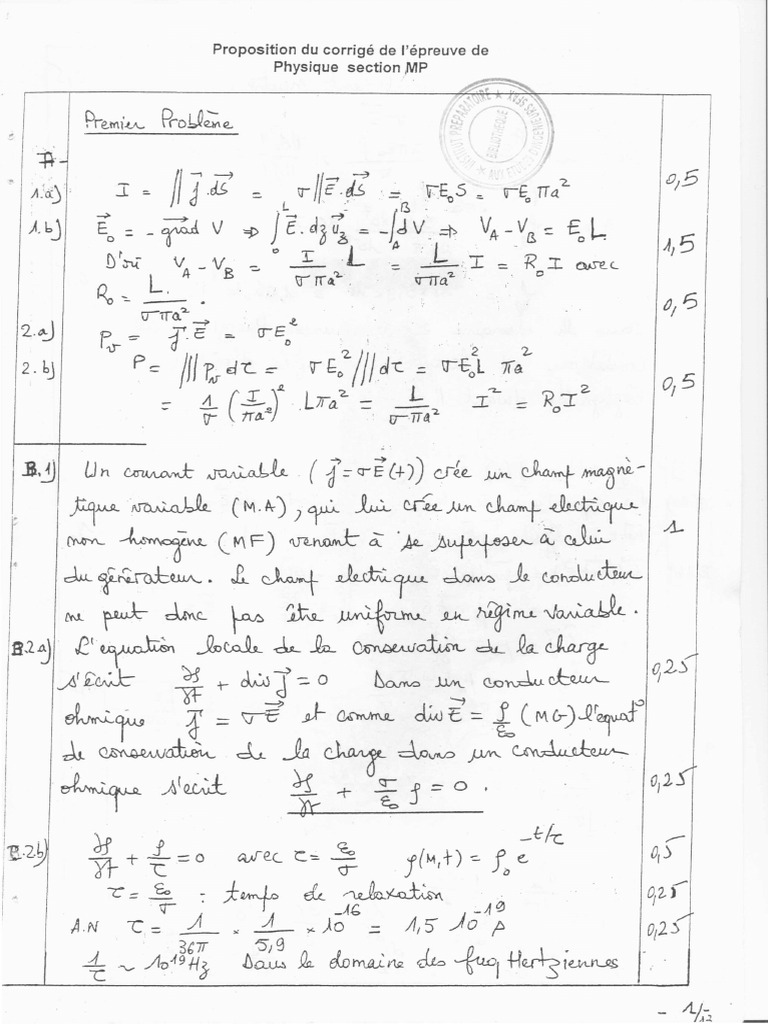 Proposition du corrigé de l'épreuve de
Physique section MP
INSTITUT PREPARATOIRE ★ AUX ETUDES D'INGENIEURS SFAX ★
BIBLIOTHEQUE
Premier Problème
A-
1.a) I = ∬ j⃗.dS⃗ = σ∬E⃗.dS⃗ = σE₀S = σE₀πa² 0,5
1.b) E⃗₀ = -grad⃗ V ⇒ ∫₀ᴸ E⃗.dz u⃗z = -∫_A^B dV ⇒ V_A - V_B = E₀L 1,5
D'où V_A - V_B = I/(σπa²) L = L/(σπa²) I = R₀I avec
R₀ = L/(σπa²). 0,5
2.a) P_v = j⃗.E⃗ = σE₀²
2.b) P = ∭P_v dτ = σE₀²∭dτ = σE₀²L πa² 0,5
= 1/σ (I/πa²)² . Lπa² = L/(σπa²) I² = R₀I²
B.1) Un courant variable (j⃗=σE⃗(t)) crée un champ magné-
tique variable (M.A), qui lui crée un champ electrique
non homogène (MF) venant à se superposer à celui 1
du générateur. Le champ electrique dans le conducteur
ne peut donc pas être uniforme en régime variable.
B.2a) L'equation locale de la conservation de la charge
s'écrit ∂ρ/∂t + div j⃗ = 0 Dans un conducteur 0,25
ohmique j⃗ = σE⃗ et comme div E⃗ = ρ/ε₀ (MG) l'equat°
de conservation de la charge dans un conducteur
ohmique s'ecrit ∂ρ/∂t + σ/ε₀ ρ = 0. 0,25
B.2b) ∂ρ/∂t + ρ/τ = 0 avec τ = ε₀/σ ρ(M,t) = ρ₀ e^(-t/τ) 0,5
τ = ε₀/σ : temps de relaxation 0,25
A.N τ = 1/36π × 1/5,9 × 10⁻¹⁶ = 1,5 10⁻¹⁹ s 0,25
1/τ ~ 10¹⁹Hz Dans le domaine des freq Hertziennes
- 1/-